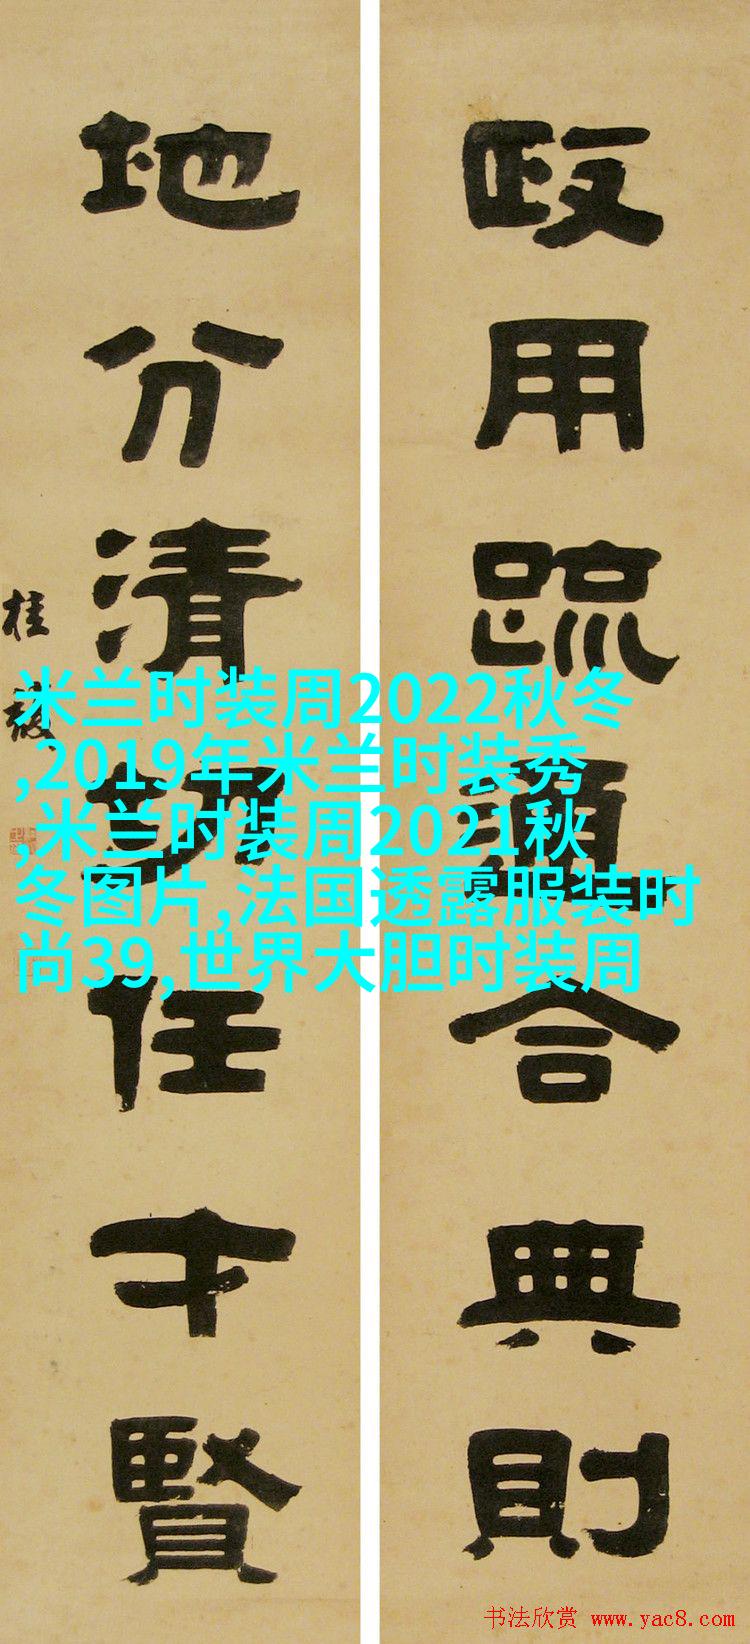 政用疏通合典則
地分清切任才賢
桂馥
米兰时装周2022秋冬
,2019年米兰时装秀
,米兰时装周2021秋
冬图片,法国透露服装时
尚39,世界大胆时装周
书法欣赏 www.yac8.com